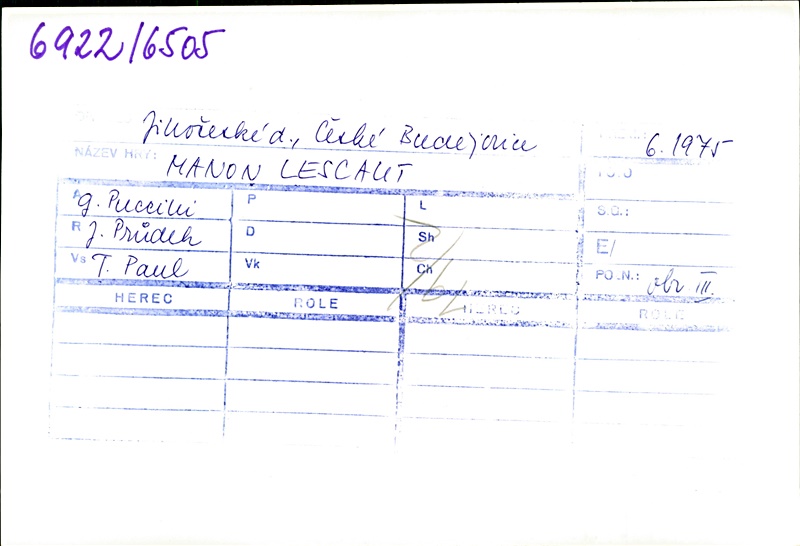 6922/6505
Jihočeské d., České Budějovice
6. 1975
NÁZEV HRY: MANON LESCAUT
A G. Puccini P L
S.G.:
R J. Průdek D Sh
E/
Vs T. Paul Vk Ch
POZN.: obr III.
HEREC ROLE HEREC ROLE